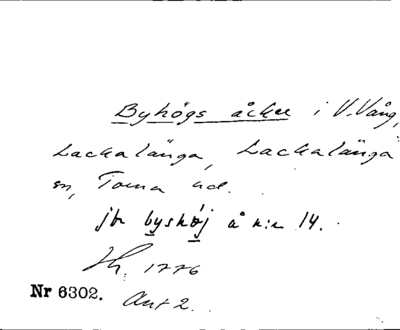 Byhögs åker i V. Vång,
Lackalänga, Lackalänga
sn, Torna hd.
jfr byshöj å n:r 14.
Jh. 1776
Nr 6302. Ant 2.